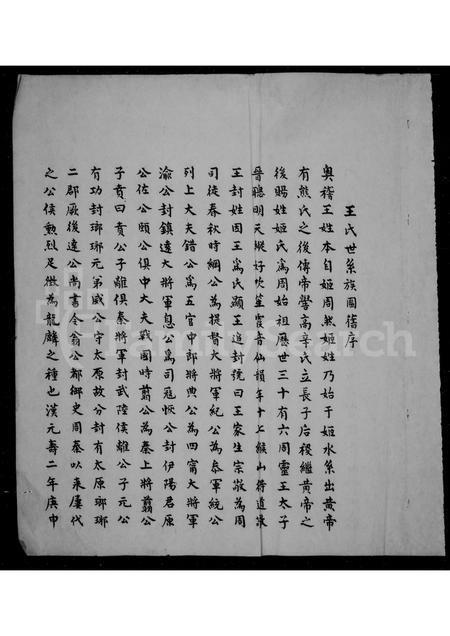 王氏世系族圖舊序
奧稽王姓本自姬周然姬姓乃始于姬水系出黄帝
有熊氏之後傳帝嚳高辛氏立長子后稷繼黄帝之
後賜姓姬氏爲周始祖歷世三十有六周靈王太子
晉聰明天縱好吹笙霞音仙韻年十七緱山得道
王封姓因王爲氏顯王追封號曰王家生宗敬為周
司徒春秋時綱公為提督大將軍紀公為叅軍統公
列上大夫錯公爲五官中郎將典公為四甯大將軍
渝公封鎮遠大將軍息公爲司寇恢公封伊陽君原
公佐公頤公俱中大夫戰國時翦公為秦上將翦公
子賁曰賁公子離俱秦將軍封武陸侯離公子元公
有功封瑯琊元弟威公守太原故分封有太原瑯琊
二郡厥後遠公尚書令翁公都鄉史周秦以來屢代
之公侯勲烈足徵為龍麟之種也漢元壽二年庚申
FamilySearch